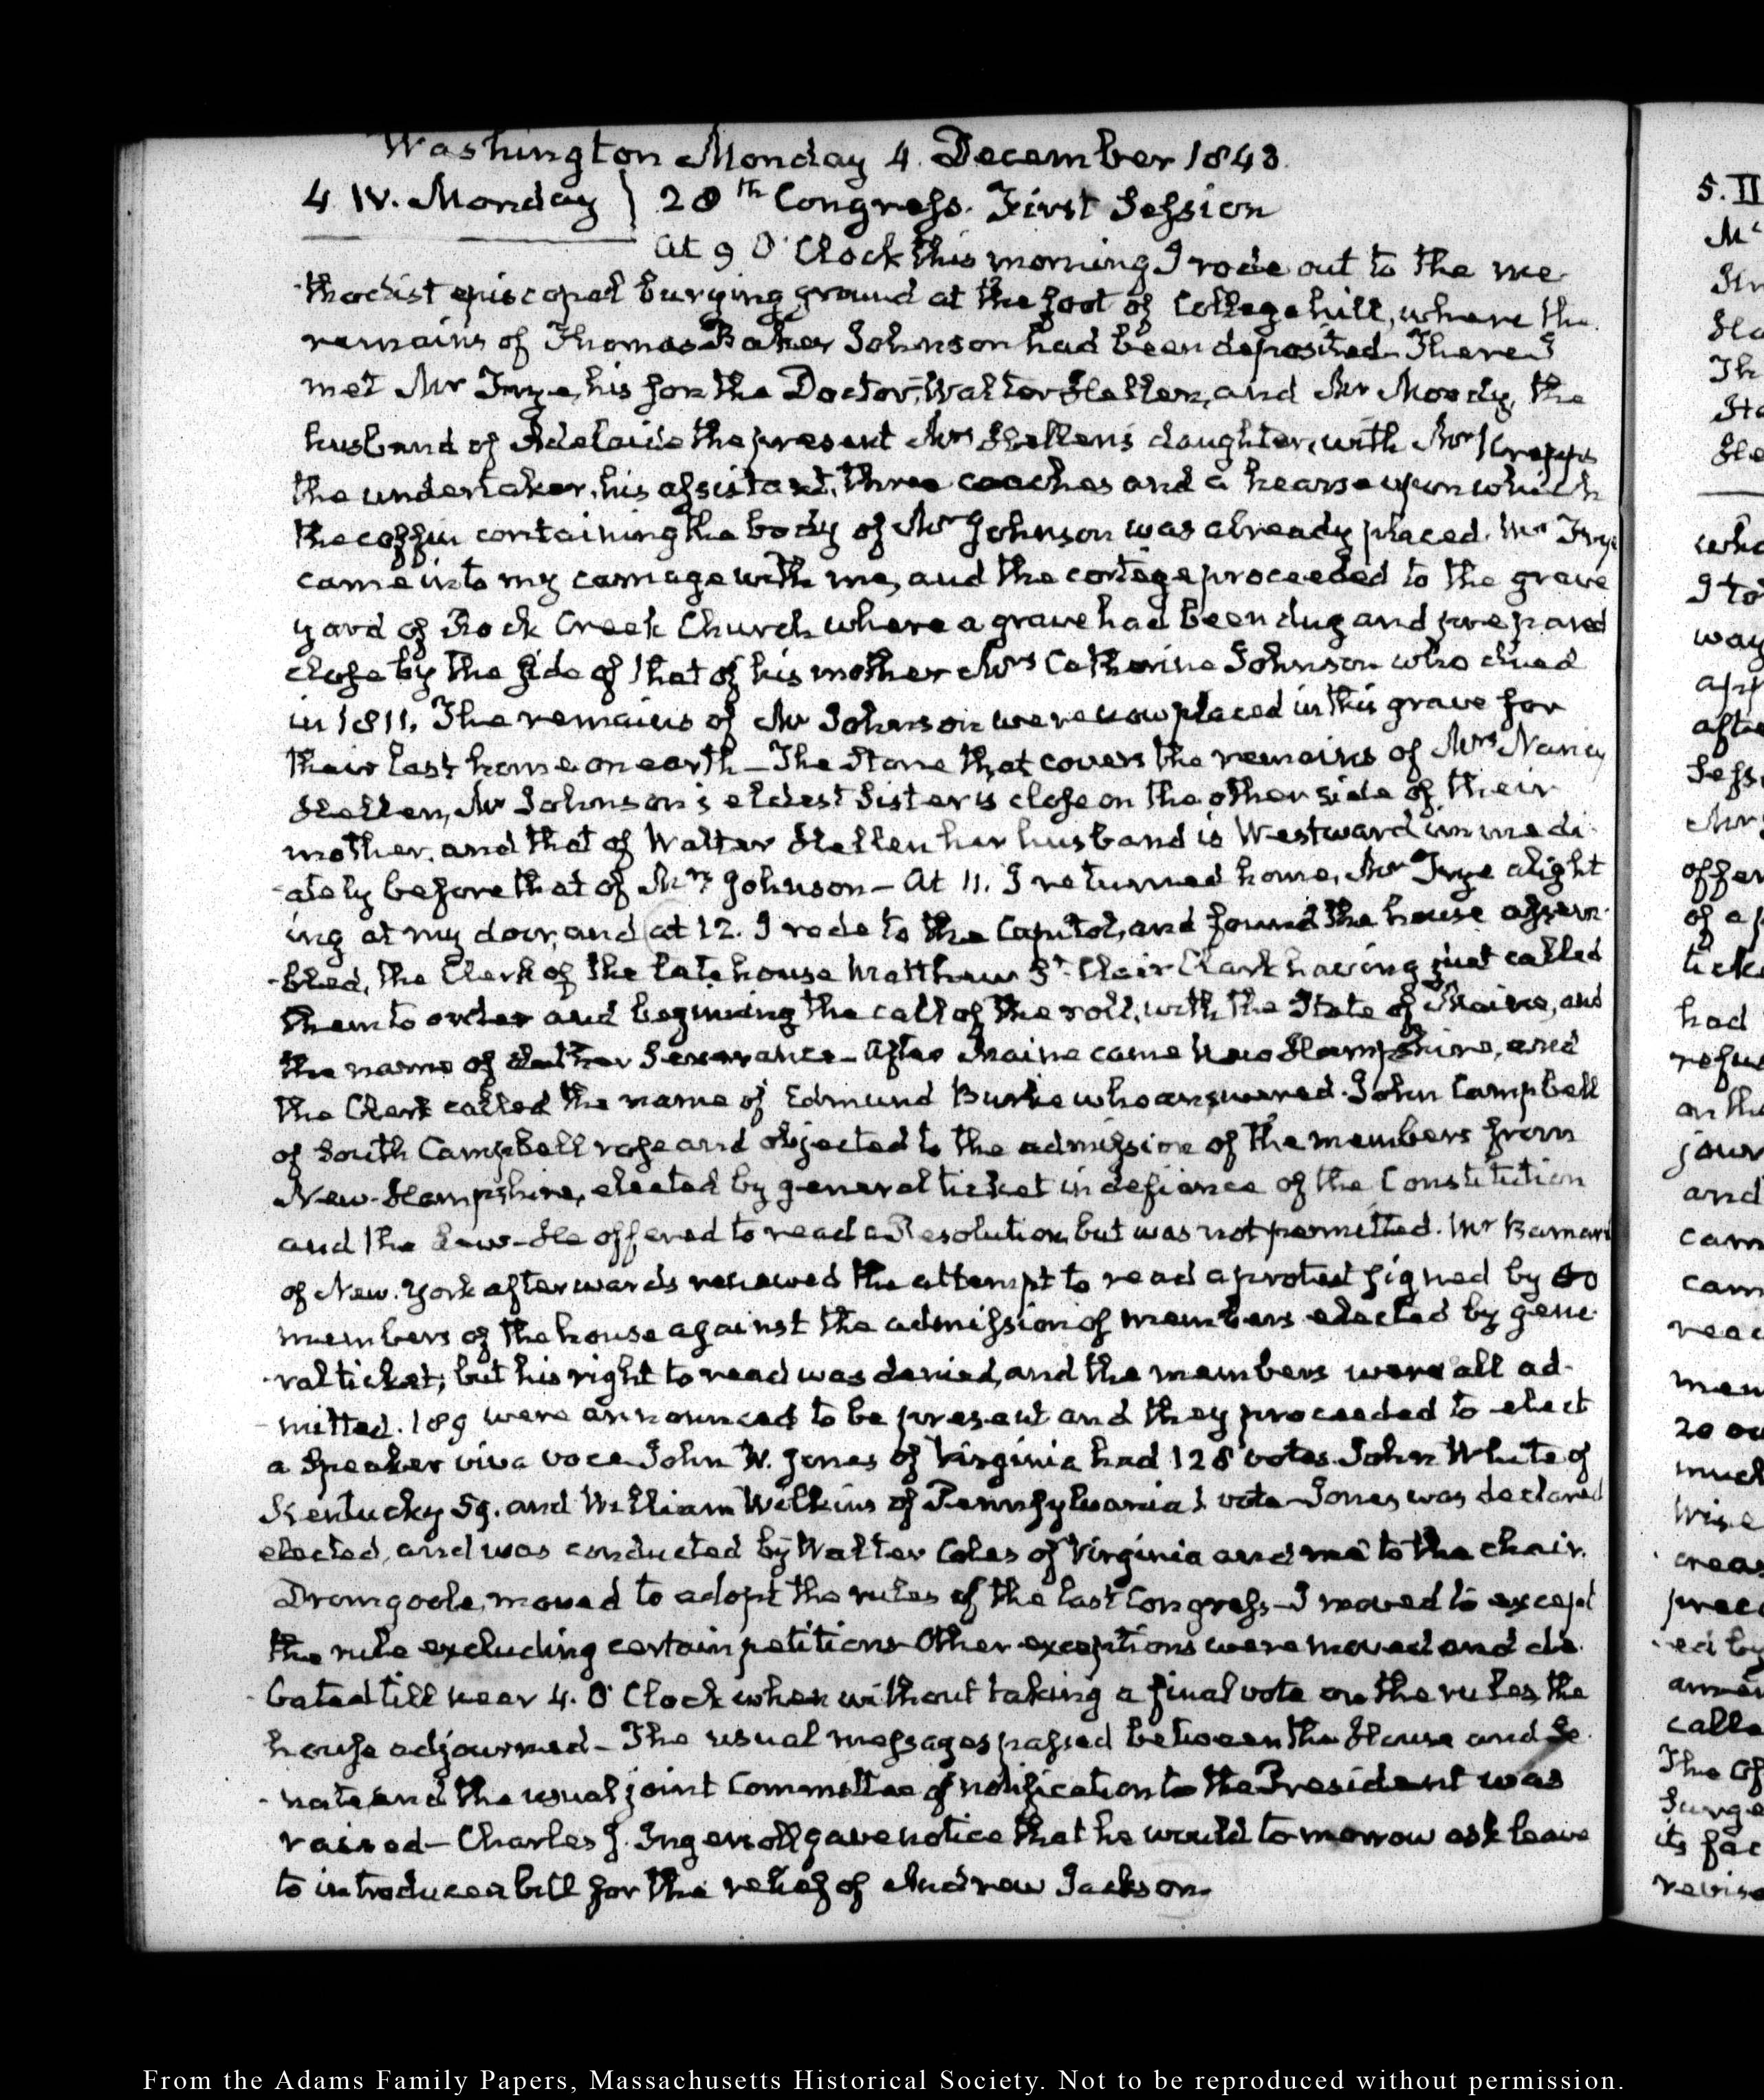 Washington Monday 4. December 1843.
4 IV. Monday } 28th Congress. First Session
At 9 O'Clock this morning I rode out to the me-
-thodist episcopal burying ground at the foot of College hill, where the
remains of Thomas Baker Johnson had been deposited. There I
met Mr Frye, his son the Doctor, Walter Hellen, and Mr Moody, the
husband of Adelaide the present Mrs Hellen's daughter, with Mr
the undertaker, his assistant, three coaches and a hearse upon which
the coffin containing the body of Mr Johnson was already placed. Mr Frye
came into my carriage with me, and the cortege proceeded to the grave
yard of Rock Creek Church where a grave had been dug and prepared
close by the side of that of his mother Mrs Catherine Johnson who died
in 1811. The remains of Mr Johnson were now placed in this grave for
their last home on earth— The Stone that covers the remains of Mrs Nancy
Hellen, Mr Johnson's eldest Sister is close on the other side of their
mother, and that of Walter Hellen her husband is Westward immedi-
-ately before that of Mrs Johnson— At 11. I returned home, Mr Frye alight
ing at my door, and at 12. I rode to the Capitol, and found the house assem-
-bled, the Clerk of the late house Matthew St. Clair Clark having just called
them to order and beginning the call of the roll, with the State of Maine, and
the name of Luther Severance— After Maine came New Hampshire, and
the Clerk called the name of Edmund Burke who answered. John Campbell
of South Campbell rose and objected to the admission of the members from
New-Hampshire, elected by general ticket in defiance of the Constitution
and the Law— He offered to read a Resolution, but was not permitted. Mr Barnard
of New. York afterwards renewed the attempt to read a protest signed by 50
members of the house against the admission of members elected by gene-
-ral ticket; but his right to read was denied, and the members were all ad-
-mitted. 189 were announced to be present and they proceeded to elect
a Speaker viva voce John W. Jones of Virginia had 128 votes. John White of
Kentucky 59. and William Wilkins of Pennsylvania 1 vote— Jones was declared
elected, and was conducted by Walter Coles of Virginia and me to the chair.
Dromgoole, moved to adopt the rules of the last Congress— I moved to except
the rule excluding certain petitions— Other exceptions were moved and de-
-bated till near 4. O'Clock when without taking a final vote on the rules the
house adjourned— The usual messages passed between the House and Se-
-nate, and the usual joint Committee of notification to the President was
raised— Charles J. Ingersoll gave notice that he would to-morrow ask leave
to introduce a bill for the relief of Andrew Jackson.
5. II
had
and
way
From the Adams Family Papers, Massachusetts Historical Society. Not to be reproduced without permission.